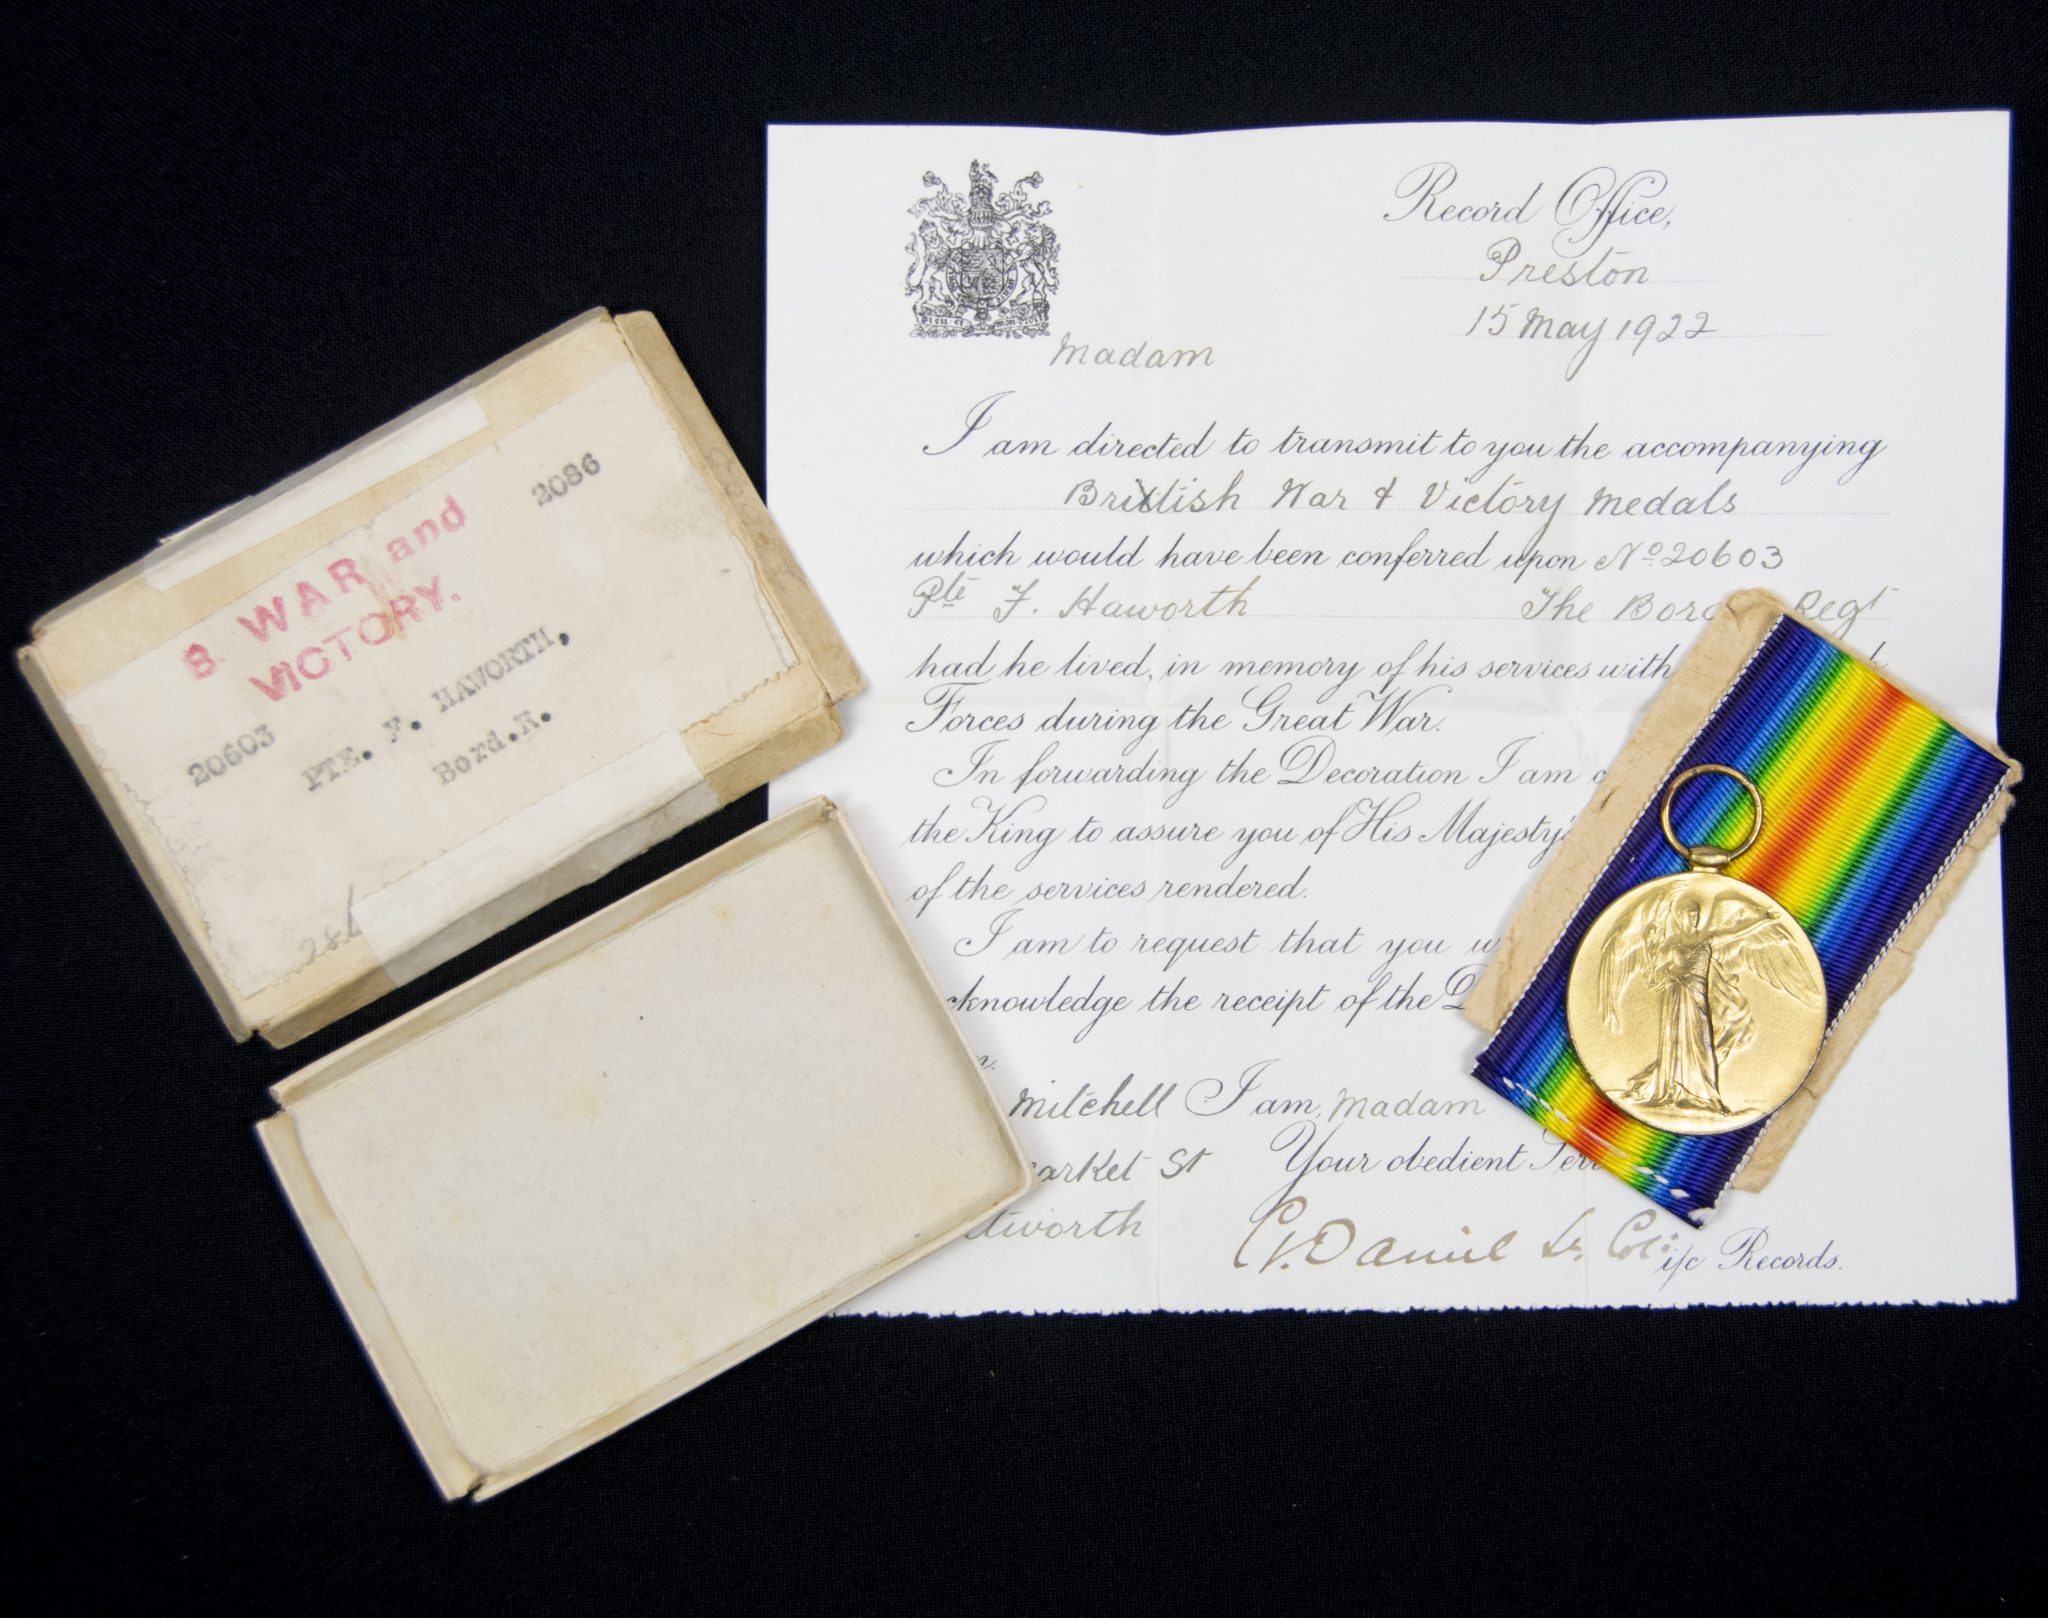 B. WAR and
VICTORY.
2086
20603
PTE. F. HAWORTH,
Bord.R.
DIEU ET MON DROIT
Record Office,
Preston
15 May 1922
Madam
I am directed to transmit to you the accompanying
British War & Victory Medals
which would have been conferred upon No 20603
Pte F. Haworth The Bord Regt
had he lived, in memory of his services with
Forces during the Great War.
In forwarding the Decoration I am
the King to assure you of His Majesty's
of the services rendered.
I am to request that you
cknowledge the receipt of the
Mitchell I am, Madam
arket St Your obedient Ser
tworth
Daniel Lt. Col: i/c Records.